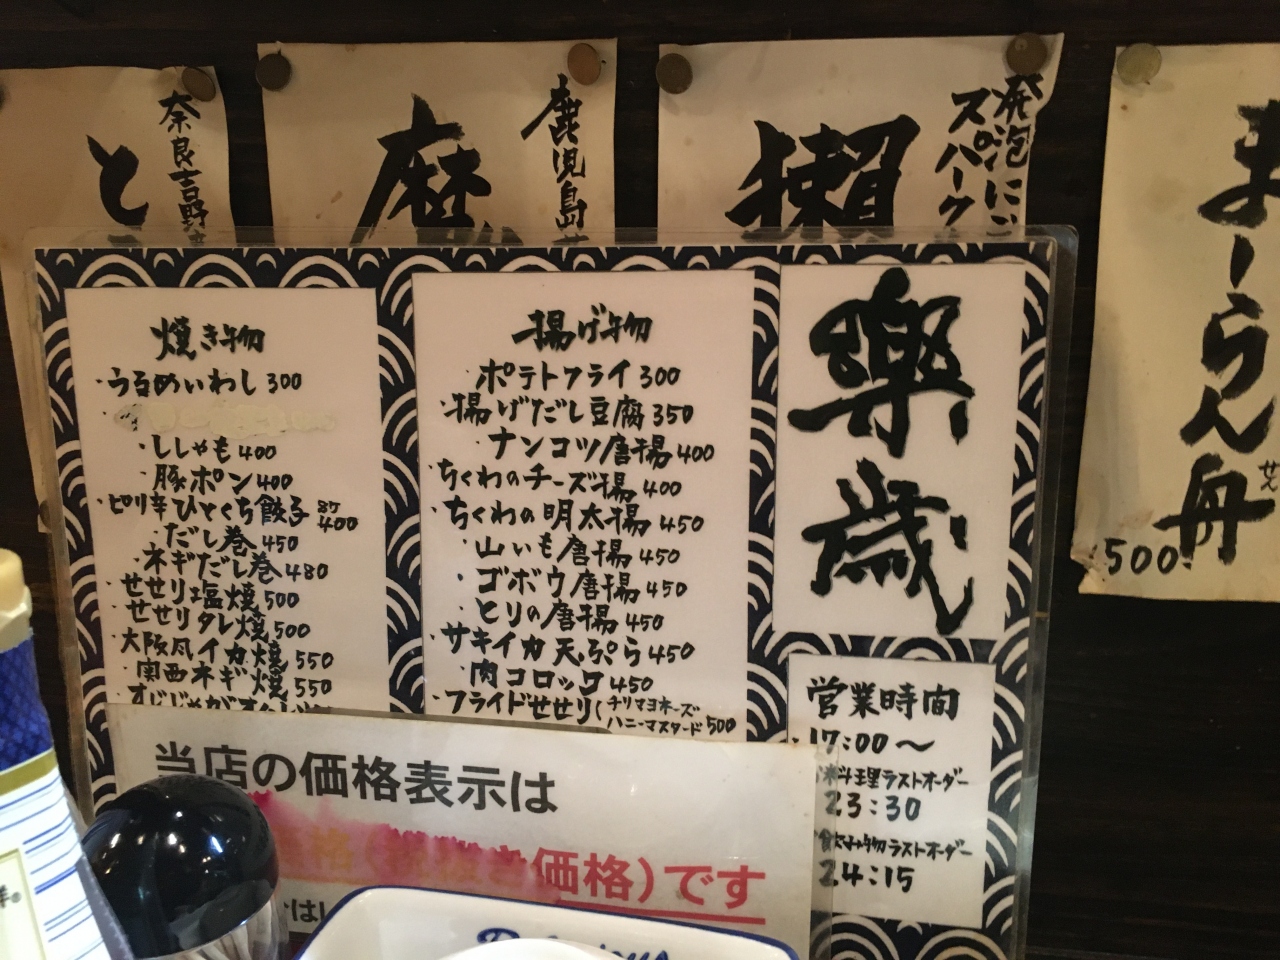 奈良吉野
と
鹿児島
磨
発泡にご
スパーク
獺
まーらん舟
せん
500
焼き物
・うるめいわし 300
・ししゃも 400
・豚ポン 400
・ピリ辛ひとくち餃子 8ケ 400
・だし巻 450
・ネギだし巻 480
・せせり塩焼 500
・せせりタレ焼 500
・大阪風イカ焼 550
・関西ネギ焼 550
揚げ物
・ポテトフライ 300
・揚げだし豆腐 350
・ナンコツ唐揚 400
・ちくわのチーズ揚 400
・ちくわの明太揚 450
・山いも唐揚 450
・ゴボウ唐揚 450
・とりの唐揚 450
・サキイカ天ぷら 450
・肉コロッケ 450
・フライドせせり(チリマヨネーズ
ハニーマスタード 500
楽歳
営業時間
17:00〜
料理ラストオーダー
23:30
飲み物ラストオーダー
24:15
当店の価格表示は
価格)です